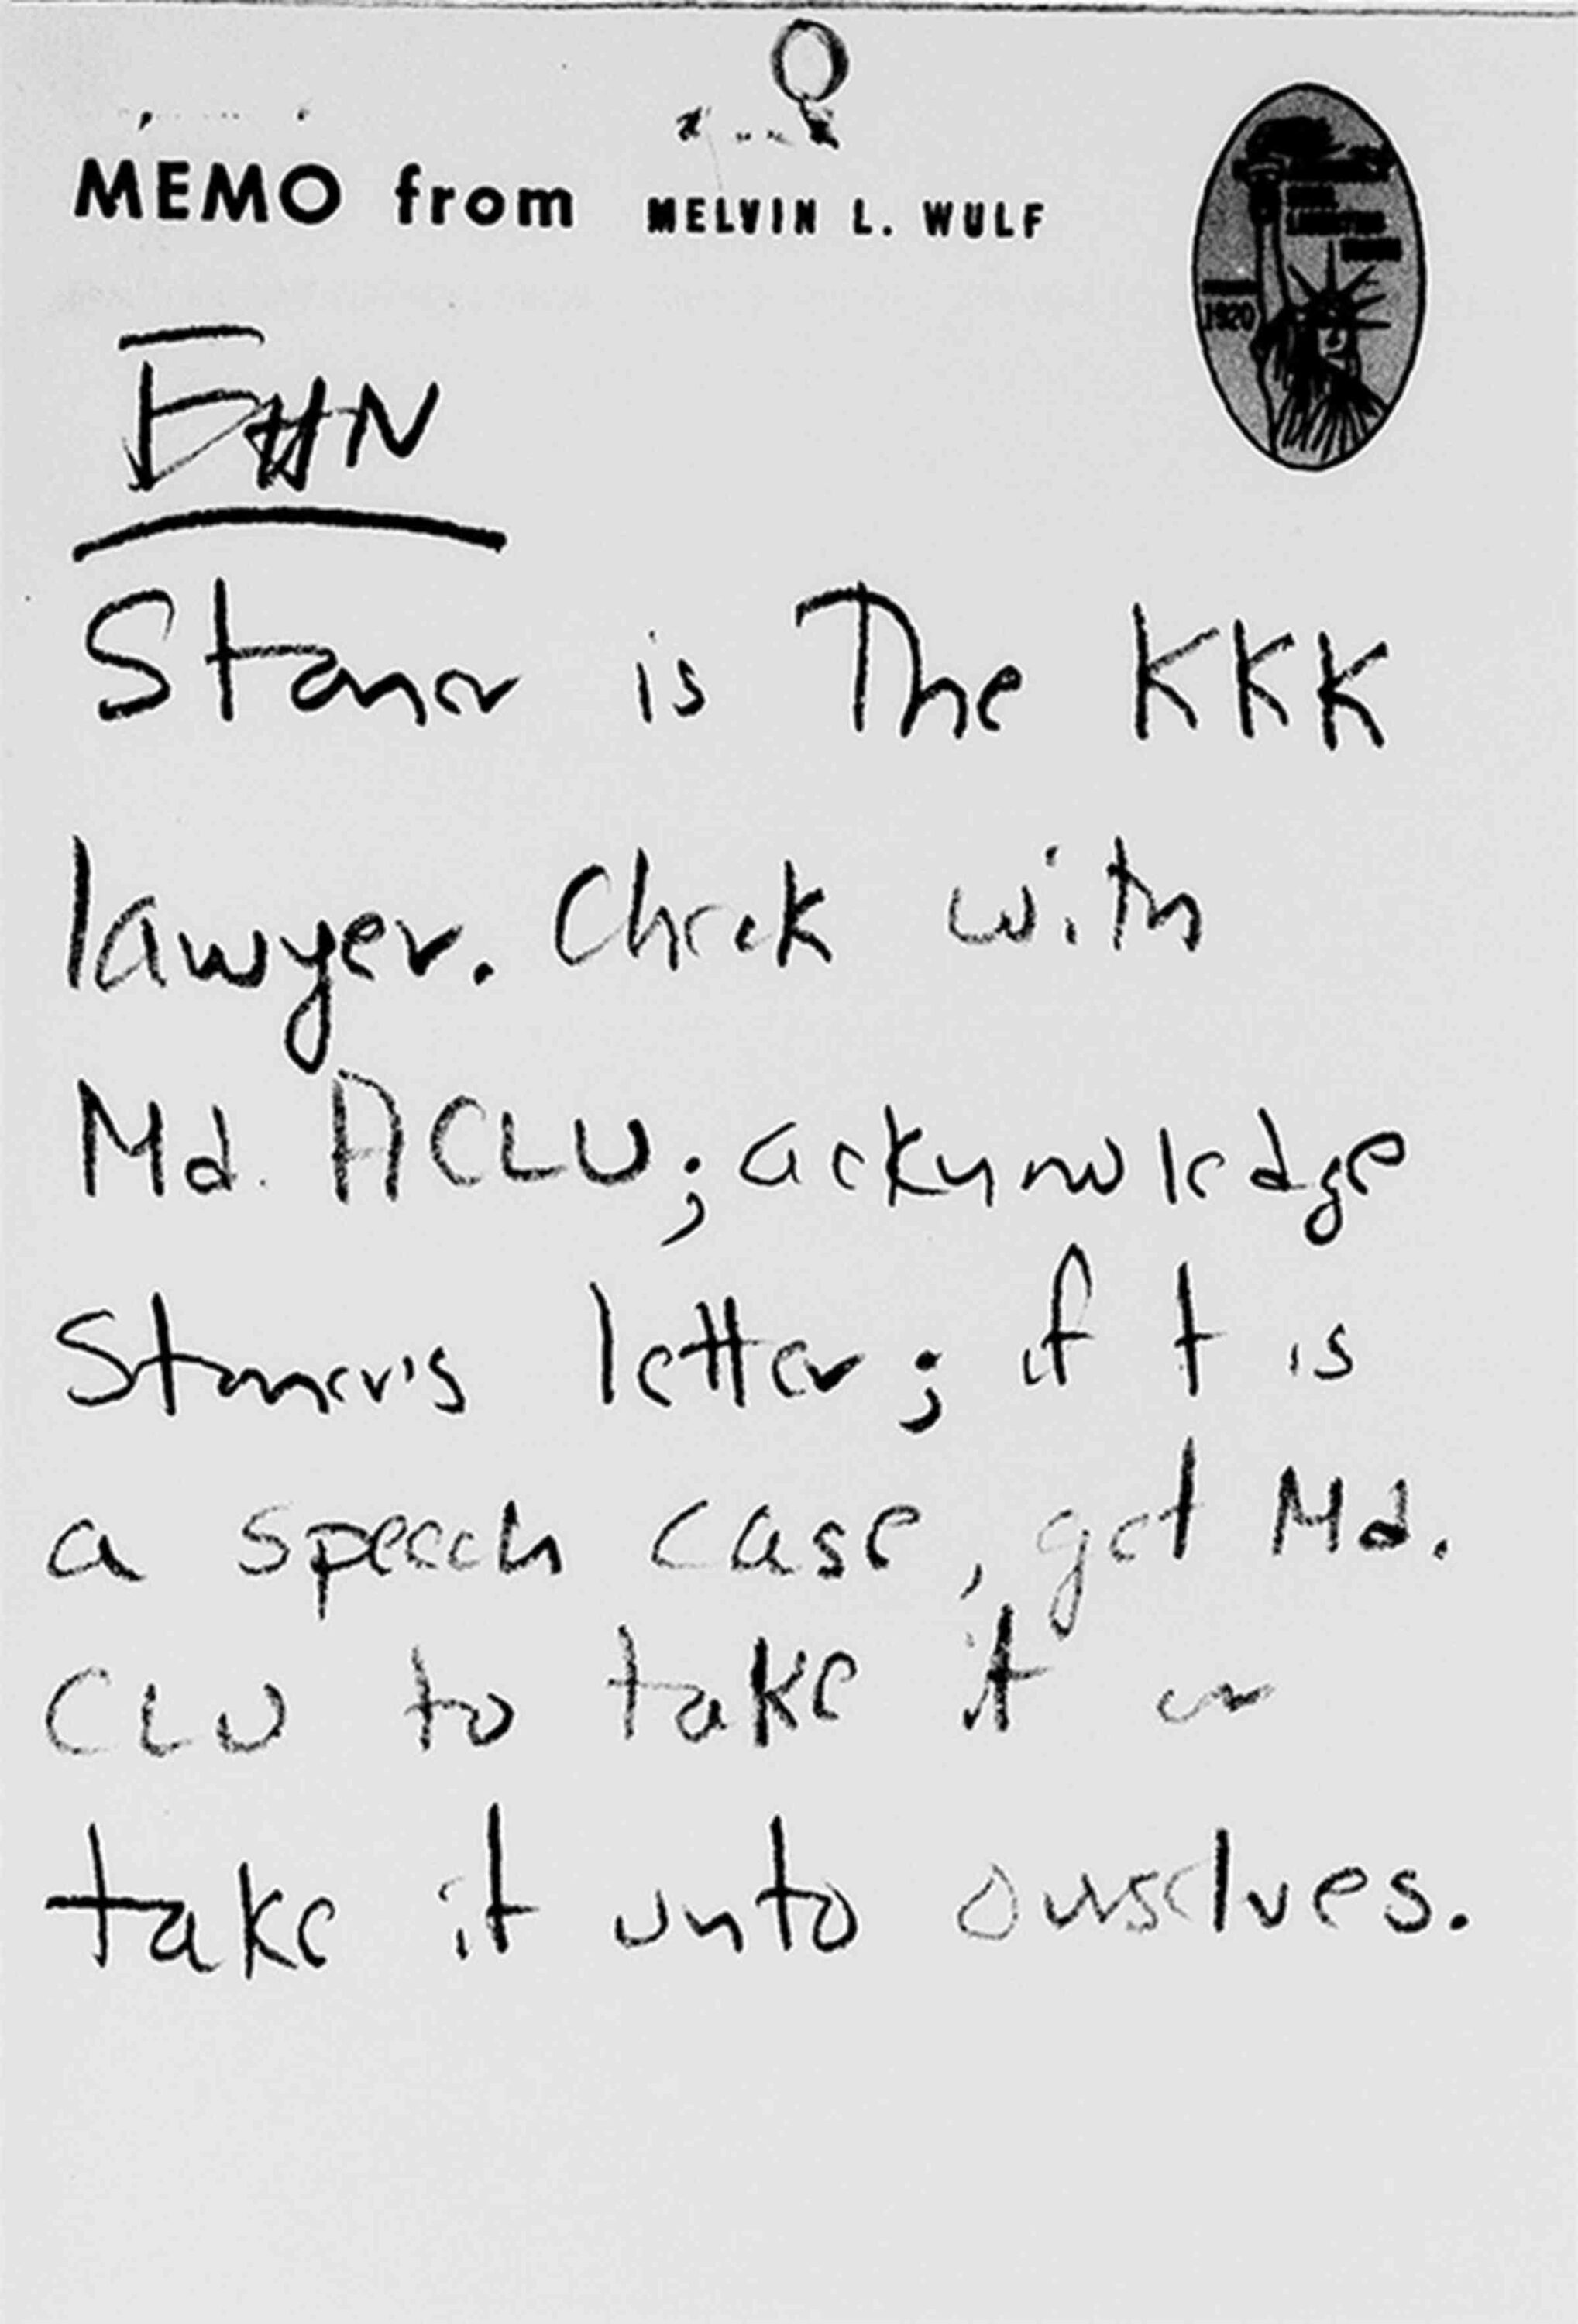 MEMO from MELVIN L. WULF
1920
EHN
Stoner is The KKK
lawyer. Check with
Md. ACLU; acknowledge
Stoner's letter; if t is
a speech case, get Md.
CLU to take it or
take it unto ourselves.